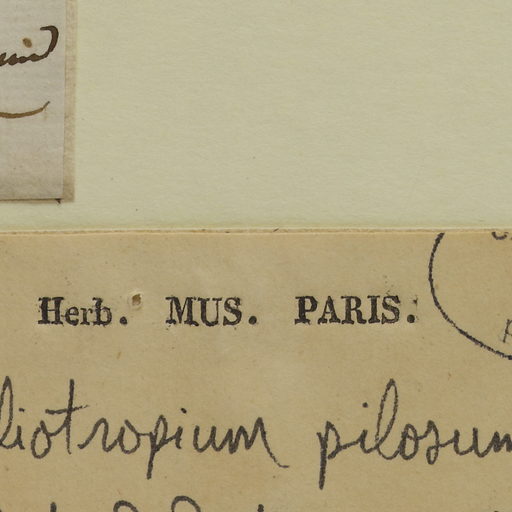 Herb. MUS. PARIS.
liotropium pilosum